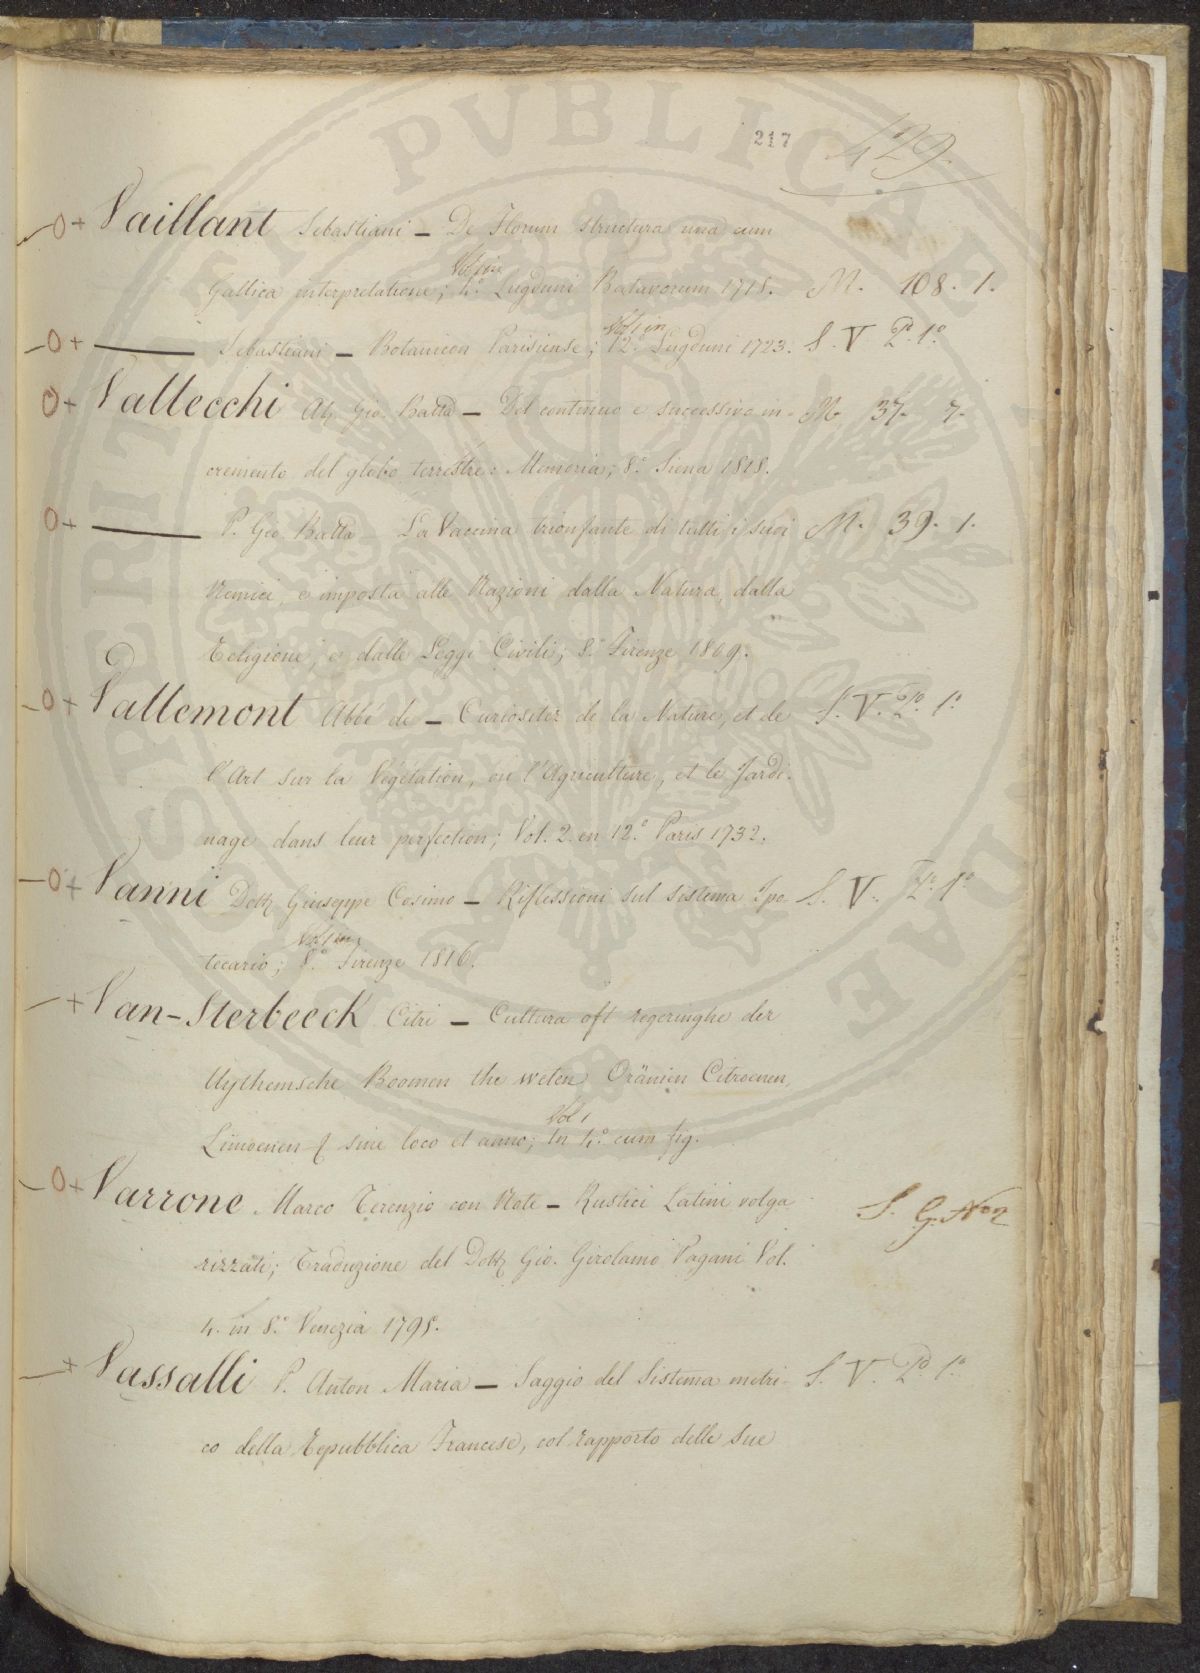 217 429.
Vaillant Sebastiani – De Florum structura una cum
Vol. 1 in
Gallica interpretatione; 4.º Lugduni Batavorum 1718. M. 108. 1.
Vol 1 in
Sebastiani – Botanicon Parisiense; 12.º Lugduni 1723. S. V P.º 1.º
Vallecchi Ab. Gio. Batta – Del continuo e successivo in- M. 37. 7.
cremento del globo terrestre: Memoria; 8.º Siena 1818.
P. Gio. Batta – La Vaccina trionfante di tutti i suoi M. 39. 1.
Nemici, e imposta alle Nazioni dalla Natura, dalla
Religione, e dalle Leggi Civili; 8.º Firenze 1809.
Vallemont Abbé de – Curiositez de la Nature, et de S. V. P.º 1.º
l'Art sur la Végétation, ou l'Agriculture, et le Jardi-
nage dans leur perfection; Vol. 2. en 12.º Paris 1732.
Vanni Dott. Giuseppe Cosimo – Riflessioni sul sistema Ipo- S. V. P.º 1.º
Vol 1 in
tecario; 8.º Firenze 1816.
Van-Sterbeeck Citri – Cultura oft regeringhe der
Uythemsche Boomen the weten Oränien Citroenen,
Vol 1
Limoenen & sine loco et anno; In 4.º cum fig.
Varrone Marco Terenzio con Note – Rustici Latini volga S. G. Nº 2
rizzati; Traduzione del Dott. Gio. Girolamo Pagani Vol.
4. in 8.º Venezia 1795.
Vassalli P. Anton Maria – Saggio del Sistema metri- S. V. P.º 1.º
co della Repubblica Francese, col rapporto delle sue